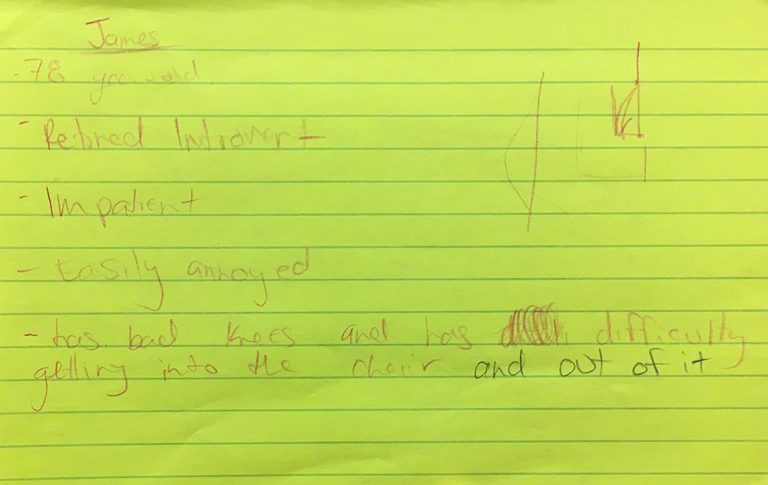 James
- 78 years old
- Retired Introvert
- Impatient
- Easily annoyed
- has bad knees and has difficulty
getting into the chair and out of it